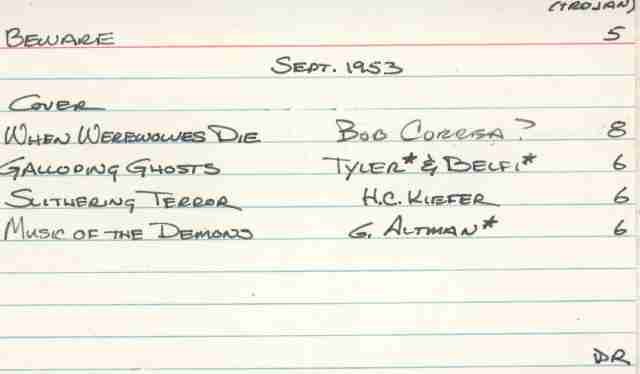 (TROJAN)
BEWARE 5
SEPT. 1953
COVER
WHEN WEREWOLVES DIE BOB CORREA? 8
GALLOPING GHOSTS TYLER* & BELFI* 6
SLITHERING TERROR H.C. KIEFER 6
MUSIC OF THE DEMONS G. ALTMAN* 6
DR